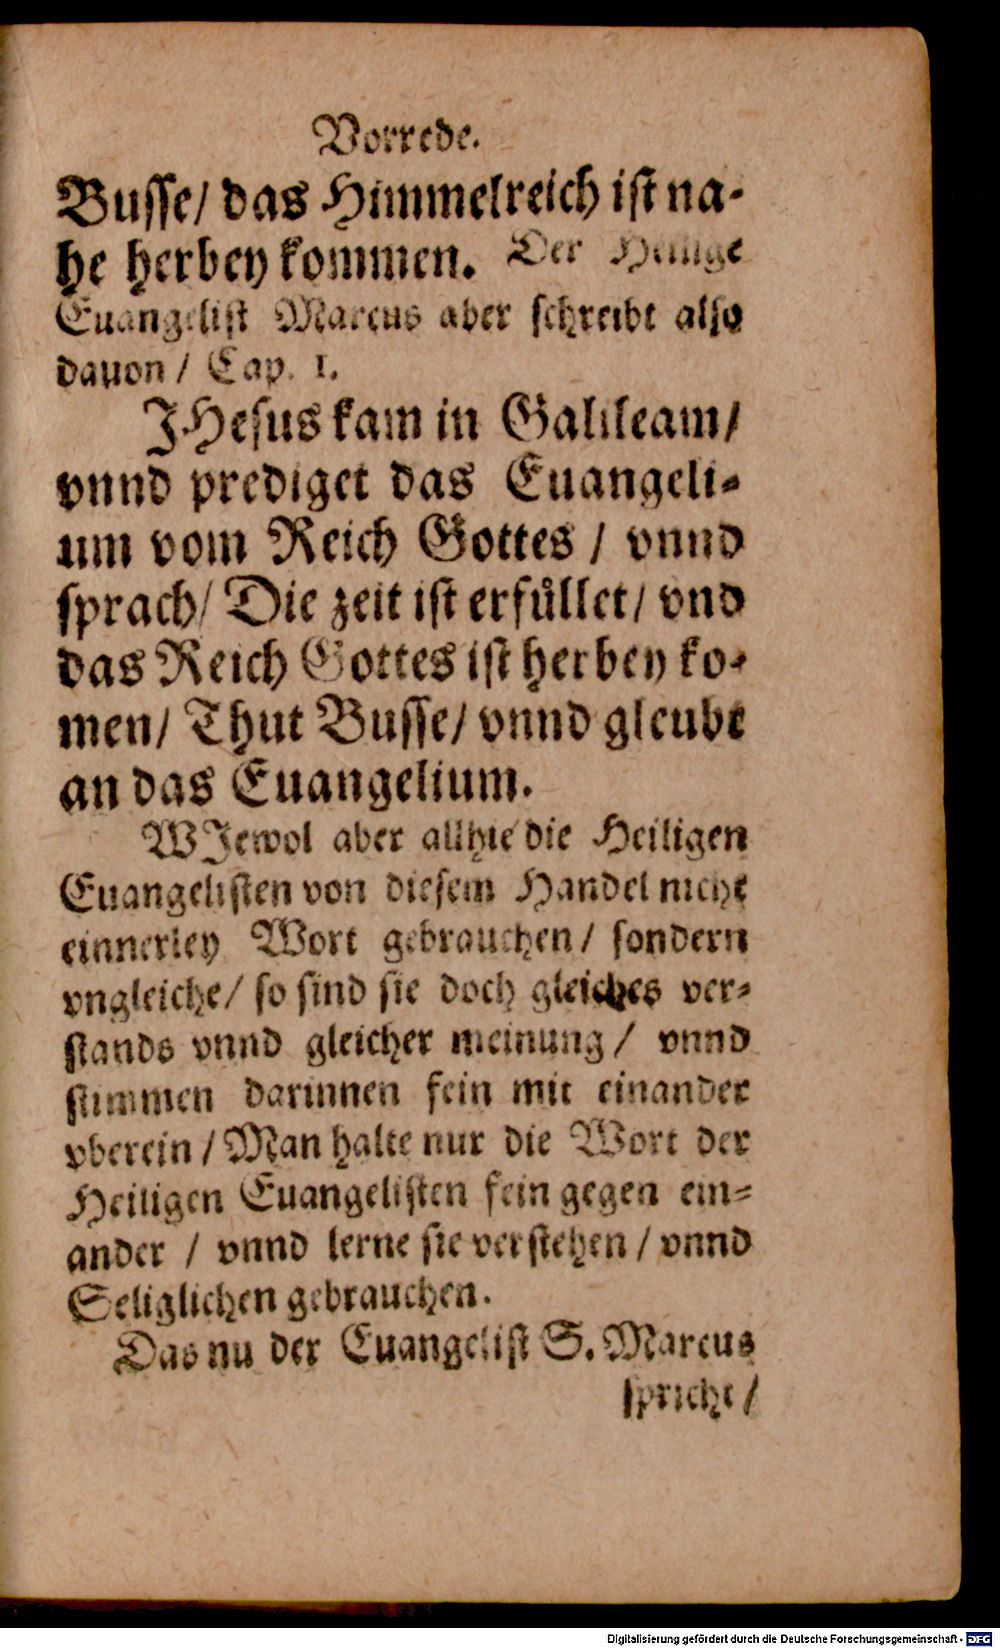 Vorrede.
Busse/ das Himmelreich ist na-
he herbey kommen. Der Heilige
Euangelist Marcus aber schreibt also
dauon / Cap. 1.
JHesus kam in Galileam/
vnnd prediget das Euangeli-
um vom Reich Gottes / vnnd
sprach/ Die zeit ist erfüllet/ vnd
das Reich Gottes ist herbey ko-
men/ Thut Busse/ vnnd gleubt
an das Euangelium.
WJewol aber allhie die Heiligen
Euangelisten von diesem Handel nicht
einnerley Wort gebrauchen/ sondern
vngleiche/ so sind sie doch gleiches ver-
stands vnnd gleicher meinung / vnnd
stimmen darinnen fein mit einander
vberein / Man halte nur die Wort der
Heiligen Euangelisten fein gegen ein-
ander / vnnd lerne sie verstehen / vnnd
Seliglichen gebrauchen.
Das nu der Euangelist S. Marcus
spricht /
Digitalisierung gefördert durch die Deutsche Forschungsgemeinschaft - DFG